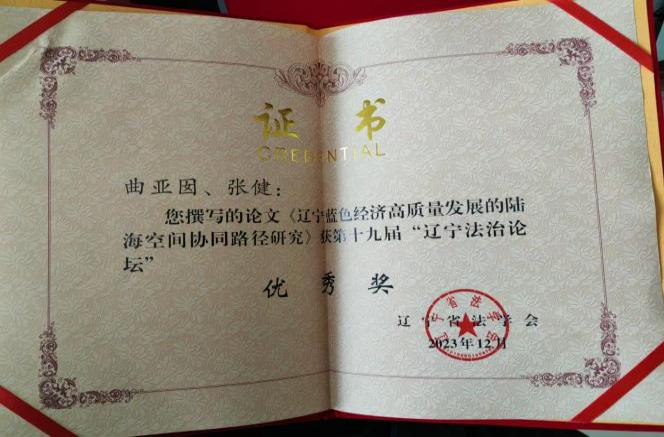 证书
CREDENTIAL
曲亚囡、张健：
您撰写的论文《辽宁蓝色经济高质量发展的陆
海空间协同路径研究》获第十九届“辽宁法治论
坛”
优秀奖
辽宁省法学会
2023年12月
辽宁省法学会